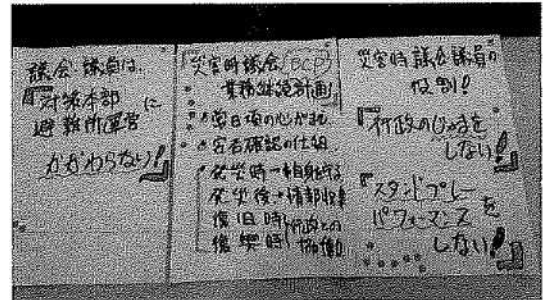 議会・議員は、
『対策本部
避難所運営 に
かかわらない！』
『災害時議会(BCP)
業務継続計画』
・常日頃の心がまえ
・安否確認の仕組
発災時→自身を守る
発災後→情報収集
復旧時
復興時 行政との協働
災害時議会議員の
役割！
『行政のじゃまを
しない！』
『スタンドプレー
パフォーマンスを
しない！』